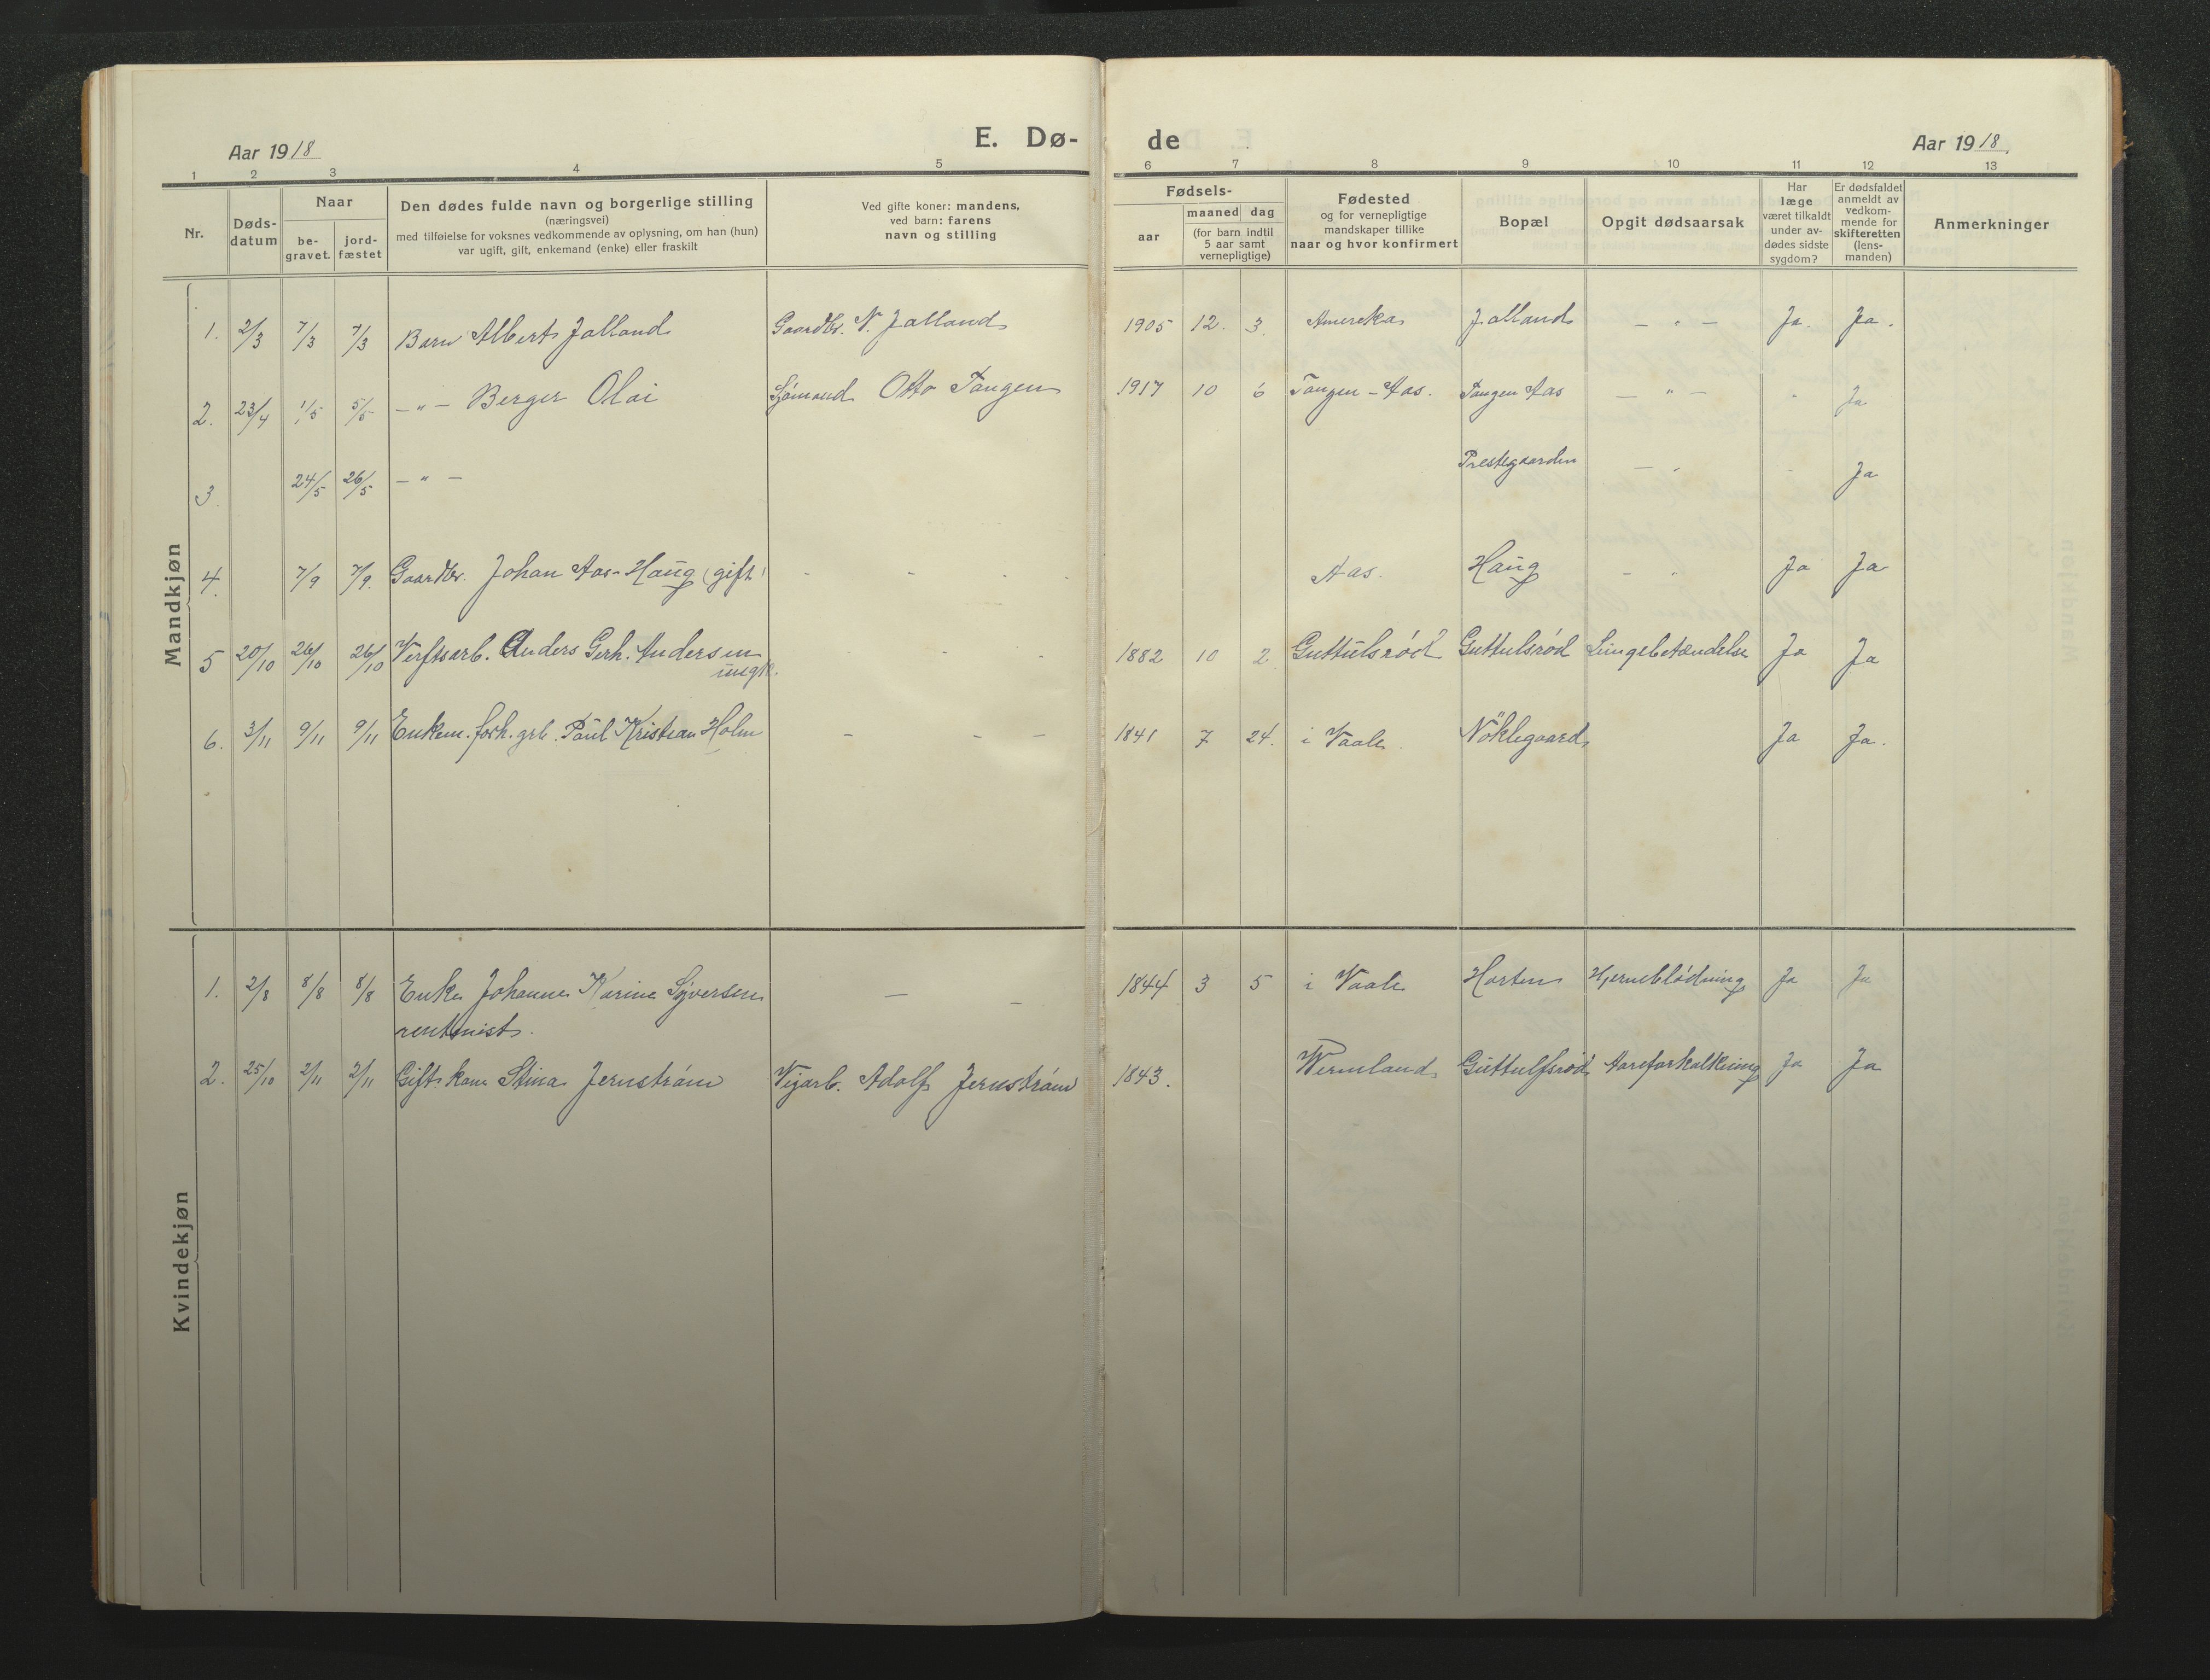 E. Dø- de
Aar 1918
Aar 1918.
1 2 3 4 5 6 7 8 9 10 11 12 13
Nr.
Døds-
datum
Naar
be-
gravet.
jord-
fæstet
Den dødes fulde navn og borgerlige stilling
(næringsvei)
med tilføielse for voksnes vedkommende av oplysning, om han (hun)
var ugift, gift, enkemand (enke) eller fraskilt
Ved gifte koner: mandens,
ved barn: farens
navn og stilling
Fødsels-
aar
maaned dag
(for barn indtil
5 aar samt
vernepligtige)
Fødested
og for vernepligtige
mandskaper tillike
naar og hvor konfirmert
Bopæl
Opgit dødsaarsak
Har
læge
været tilkaldt
under av-
dødes sidste
sygdom?
Er dødsfaldet
anmeldt av
vedkom-
mende for
skifteretten
(lens-
manden)
Anmerkninger
Mandkjøn
1. 2/3 7/3 7/3 Barn Albert Jalland Gaardbr. N. Jalland 1905 12. 3. Amerika Jalland — " — Ja. Ja.
2. 23/4 1/5 5/5 — " — Berger Olai Sjømand Otto Tangen 1917 10 6 Tangen - Aas. Tangen Aas — " — " Ja
3 24/5 26/5 — " — Prestegaarden — " Ja
4. 7/9 7/9. Gaardbr. Johan Aas-Haug (gift) - - - Aas. Haug - " Ja Ja
5 20/10 26/10 26/10 Verftsarb. Anders Gerh. Andersen - - - 1882 10 2 Guttulsrød Guttulsrød Lungebetændelse Ja Ja
ungk.
6. 3/11 9/11 9/11 Enkem. forh. grb. Paul Kristian Holm - - - 1841 7 24. i Vaale Nøklegaard Ja Ja.
Kvindekjøn
1. 2/8 8/8 8/8 Enke Johanne Karine Syversen — - 1844 3 5 i Vaale Horten Hjerneblødning Ja Ja
rentenist.
2. 25/10 2/11 2/11 Gift kone Stina Jernstrøm Vejarb. Adolf Jernstrøm 1843. Wermland Guttulfsrød Aareforkalkning Ja Ja